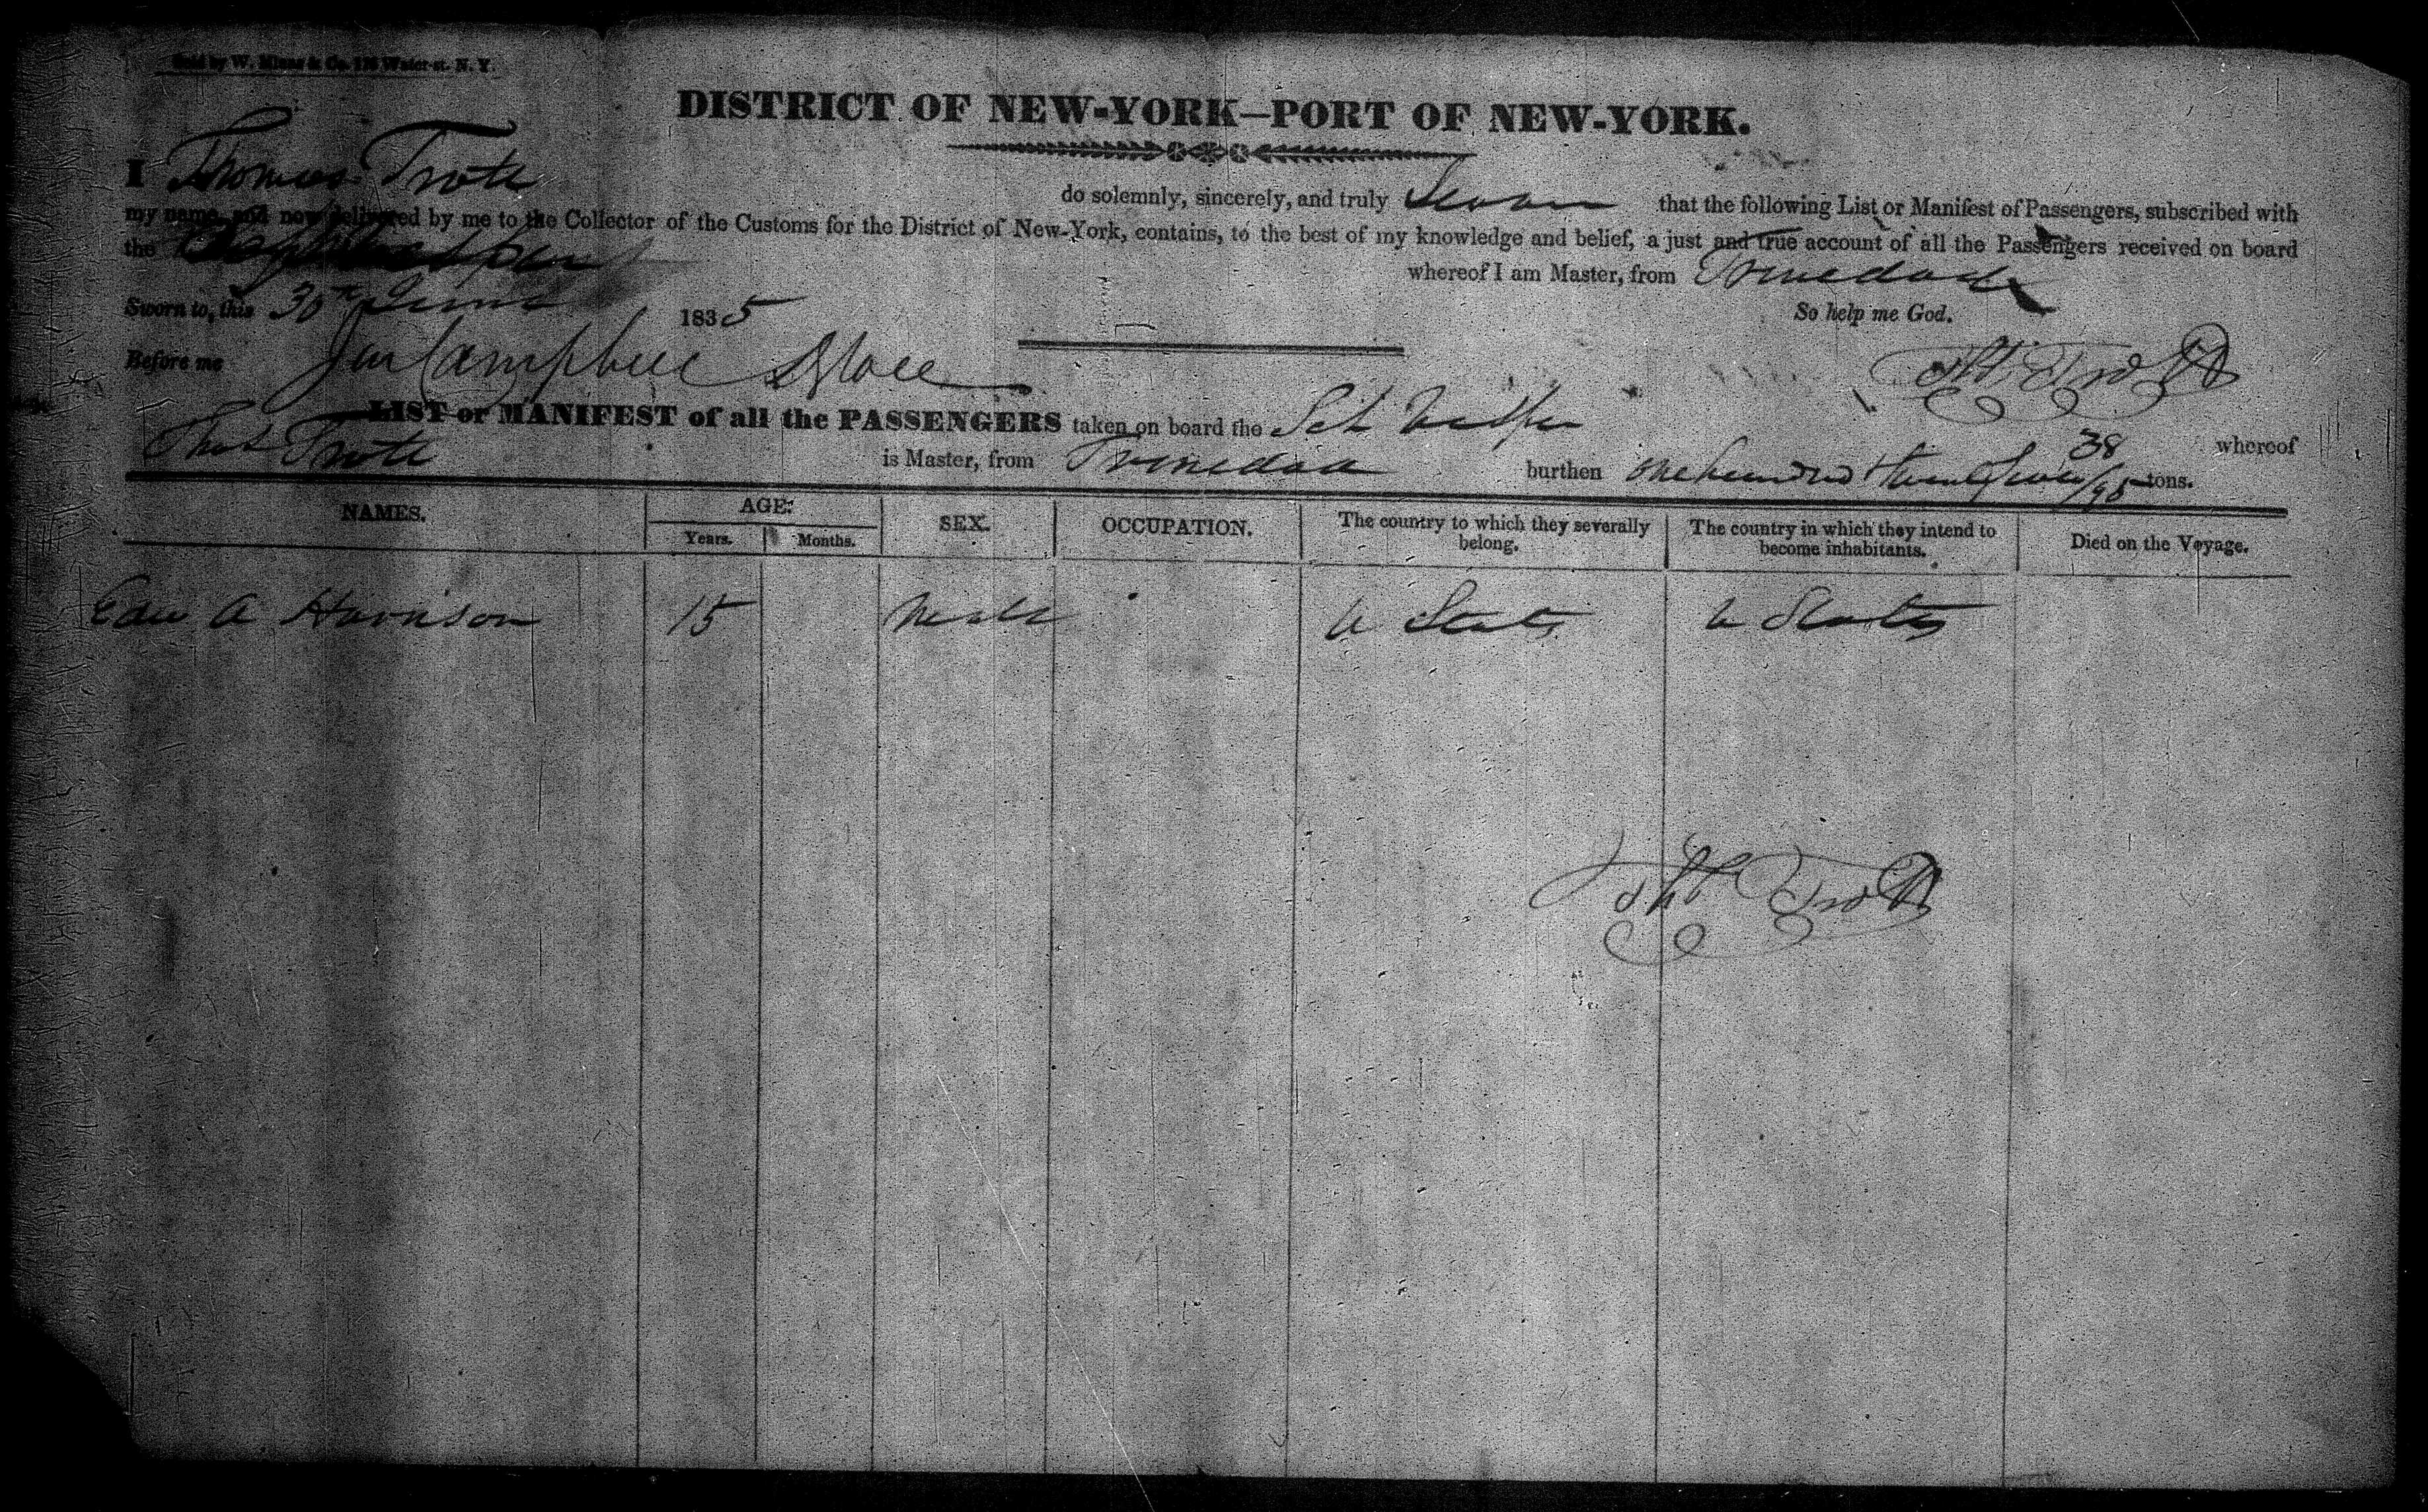 Sold by W. & Co. Water-st. N. Y.
DISTRICT OF NEW-YORK—PORT OF NEW-YORK.
I Thomas Trott do solemnly, sincerely, and truly Swear that the following List or Manifest of Passengers, subscribed with
my name, and now delivered by me to the Collector of the Customs for the District of New-York, contains, to the best of my knowledge and belief, a just and true account of all the Passengers received on board
the whereof I am Master, from Trinedad
Sworn to, this 30th June 1835 So help me God.
Before me Campbell Thos Trott
LIST or MANIFEST of all the PASSENGERS taken on board the Sch whereof
Thos Trott is Master, from Trinedad burthen one hundred 38/95 tons.
NAMES. AGE: SEX. OCCUPATION. The country to which they severally belong. The country in which they intend to become inhabitants. Died on the Voyage.
Years. Months.
Edw A Harrison 15 Male U States U States
Thos Trott